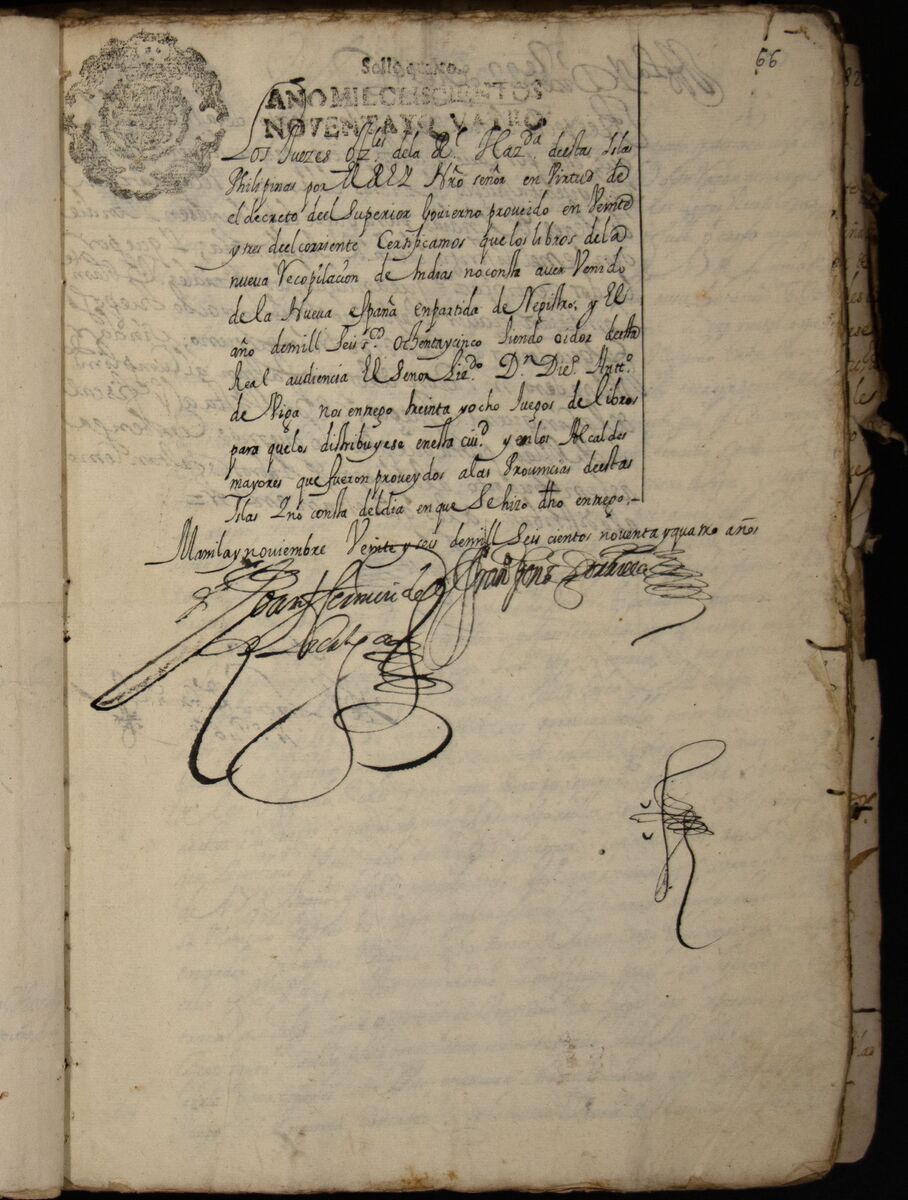 66
Sello quarto
AÑO MIL Y SEISCIENTOS
NOVENTA Y QVATRO
Los Juezes ofz.les dela R.l Haz.da deestas Islas
Philipinas por EL REY Nrõ señor en Virtud de
el decreto deel Superior Govierno proveido en Veinte
y tres deel corriente Certificamos que los libros dela
nueva Recopilaciõn de Indias no consta aver Venido
de la Nueva españa en partida de Registro, y El
año demill Seis s.tos Ochenta y cinco siendo oidor desta
Real audiencia El Señor Liz.do D.n Die.o Antt.o
de Viga nos entrego treinta y ocho Juegos de libros
para que los distribuyese en esta ciu.d y en los Alcaldes
mayores que fueron proveydos a las Provincias deestas
Islas Y no consta del dia en que Se hizo dho entrego.—
Manila y noviembre Veinte y seis demill Seis cientos noventa y quatro años